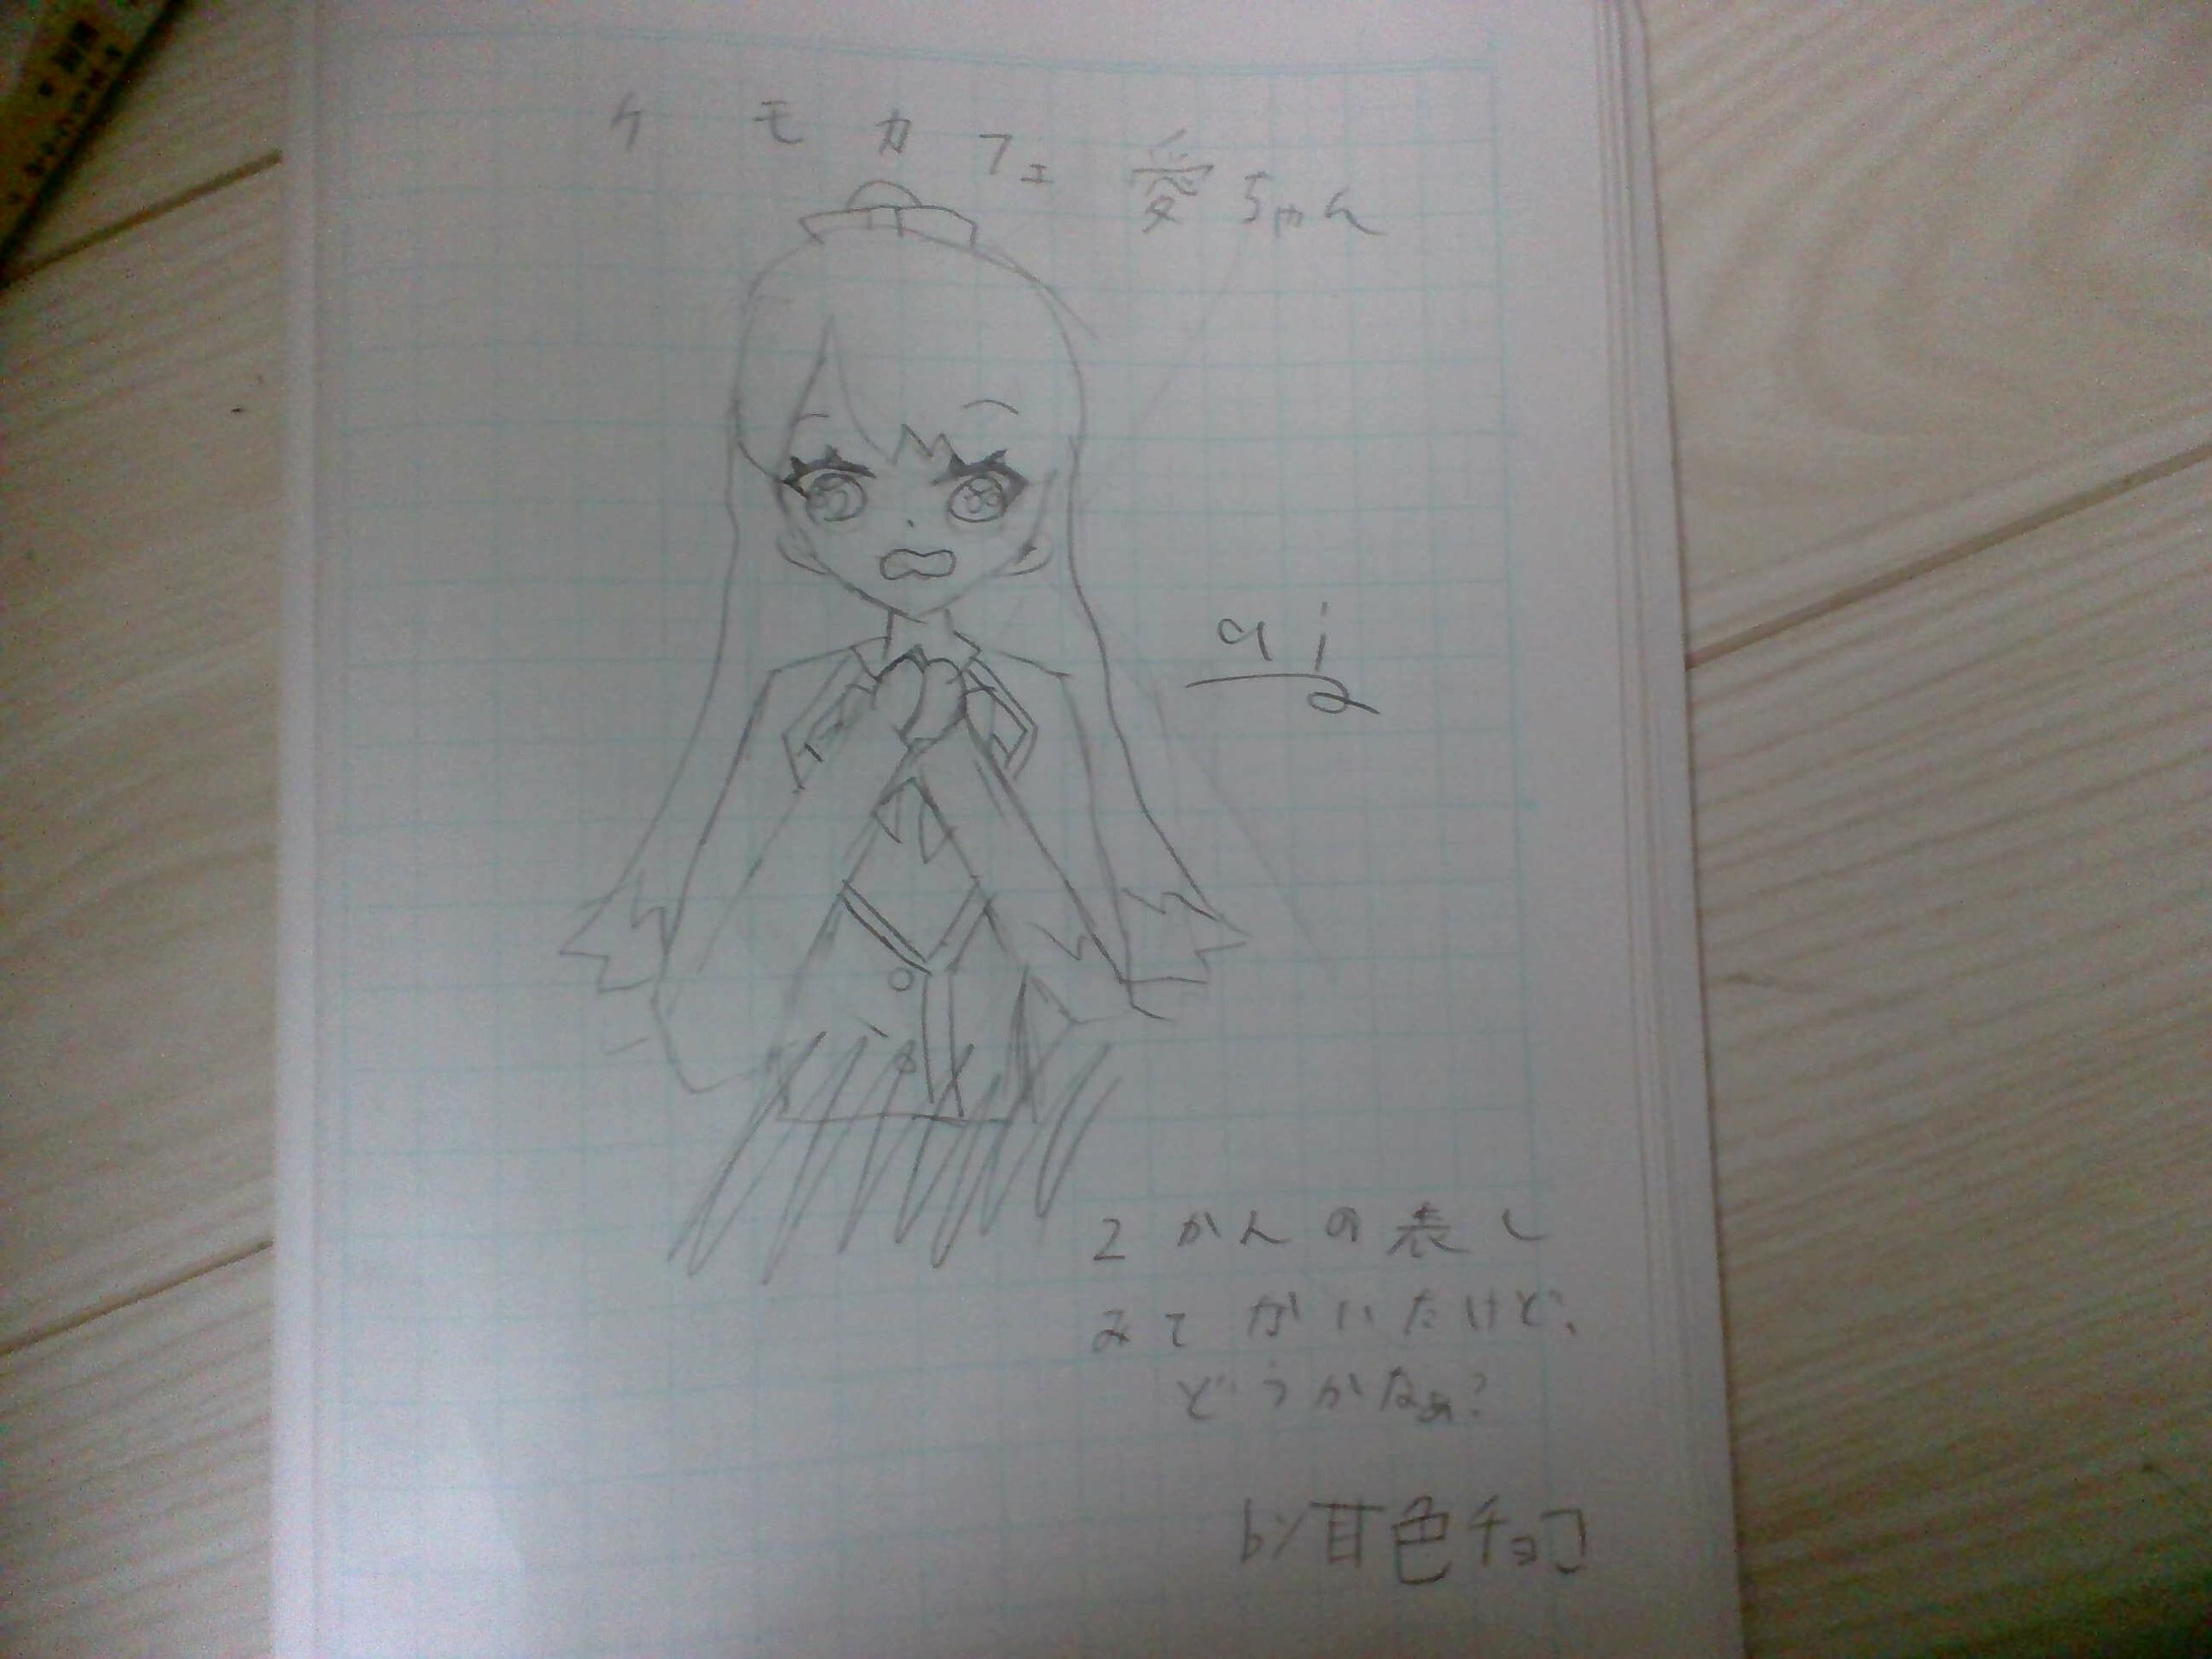 ケモカフェ 愛ちゃん
ai
2かんの表し
みてかいたけど、
どうかなぁ?
by甘色チョコ